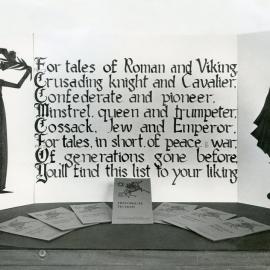 For tales of Roman and Viking,
Crusading knight and Cavalier,
Confederate and pioneer,
Minstrel, queen and trumpeter,
Cossack, Jew and Emperor,
For tales, in short, of peace & war,
Of generations gone before,
You'll find this list to your liking